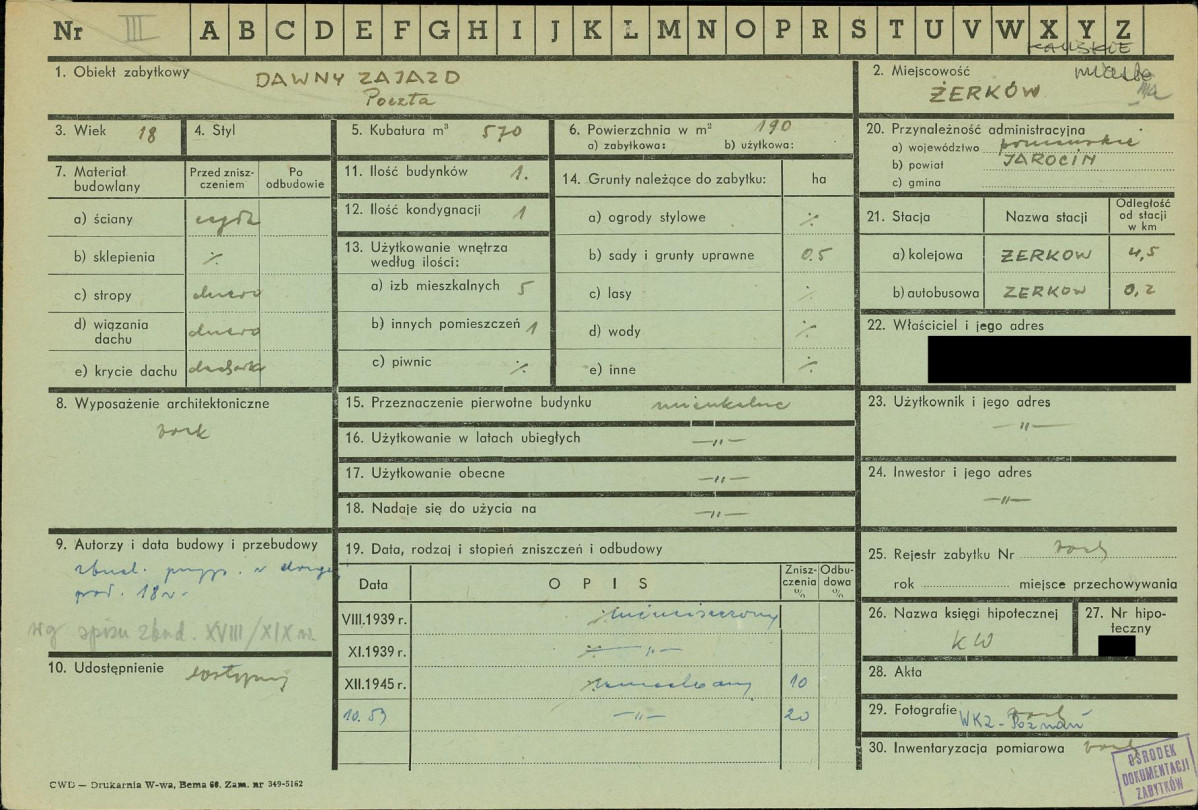 Nr III A B C D E F G H I J K Ł M N O P R S T U V W X Y Z
1. Obiekt zabytkowy DAWNY ZAJAZD
Poczta
2. Miejscowość
ŻERKÓW
3. Wiek 18
4. Styl
5. Kubatura m³ 570
6. Powierzchnia w m² 190
a) zabytkowa: b) użytkowa:
20. Przynależność administracyjna
a) województwo
b) powiat JAROCIN
c) gmina
7. Materiał budowlany
Przed zniszczeniem
Po odbudowie
a) ściany
b) sklepienia ⁒
c) stropy
d) wiązania dachu
e) krycie dachu
11. Ilość budynków 1.
12. Ilość kondygnacji 1
13. Użytkowanie wnętrza
według ilości:
a) izb mieszkalnych 5
b) innych pomieszczeń 1
c) piwnic ⁒
14. Grunty należące do zabytku: ha
a) ogrody stylowe ⁒
b) sady i grunty uprawne 0.5
c) lasy ⁒
d) wody ⁒
e) inne ⁒
21. Stacja Nazwa stacji Odległość od stacji w km
a) kolejowa ŻERKOW 4,5
b) autobusowa ŻERKOW 0,2
22. Właściciel i jego adres
8. Wyposażenie architektoniczne
15. Przeznaczenie pierwotne budynku
16. Użytkowanie w latach ubiegłych —"—
17. Użytkowanie obecne —"—
18. Nadaje się do użycia na —"—
23. Użytkownik i jego adres
—"—
24. Inwestor i jego adres
—"—
9. Autorzy i data budowy i przebudowy
zbud. przyp. w drugiej
poł. 18 w.
wg spisu zbud. XVIII/XIX w.
10. Udostępnienie dostępny
19. Data, rodzaj i stopień zniszczeń i odbudowy
Data OPIS Zniszczenia % Odbudowa %
VIII.1939 r. niezniszczony
XI.1939 r. —"—
XII.1945 r. 10
10.59 —"— 20
25. Rejestr zabytku Nr
rok miejsce przechowywania
26. Nazwa księgi hipotecznej
KW
27. Nr hipoteczny
28. Akta
29. Fotografie
WKZ - Poznań
30. Inwentaryzacja pomiarowa
OŚRODEK
DOKUMENTACJI
ZABYTKÓW
CWD — Drukarnia W-wa, Bema 60. Zam. nr 349-5162